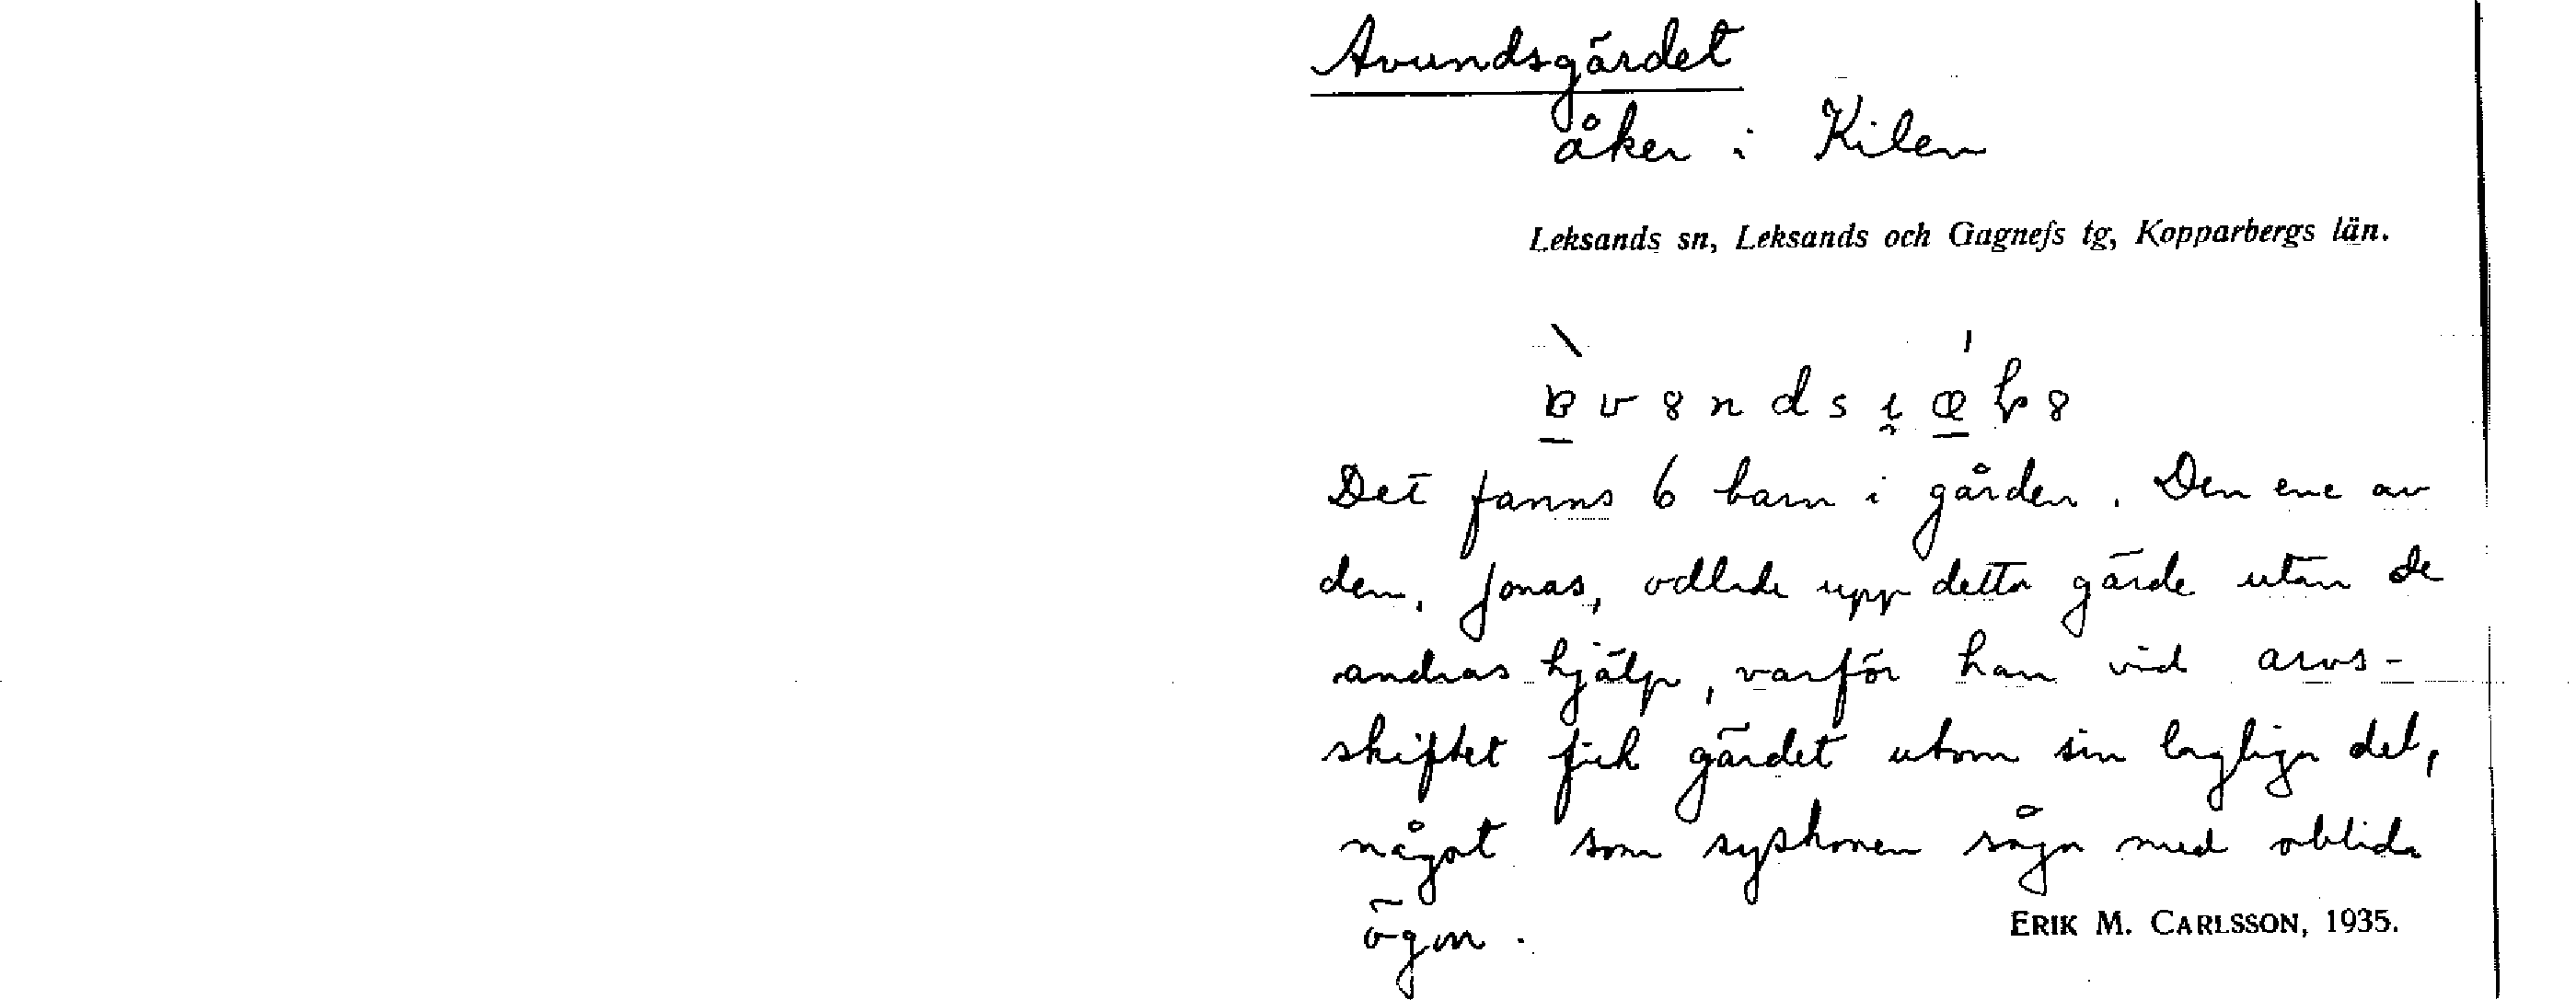 Avundsgärdet
åker i Kilen
Leksands sn, Leksands och Gagnefs tg, Kopparbergs län.
Det fanns 6 barn i gården. Den ene av
dem, Jonas, odlade upp detta gärde utan de
andras hjälp, varför han vid arvs-
skiftet fick gärdet utom sin lagliga del,
något som syskonen sågo med oblida
ögon.
ERIK M. CARLSSON, 1935.